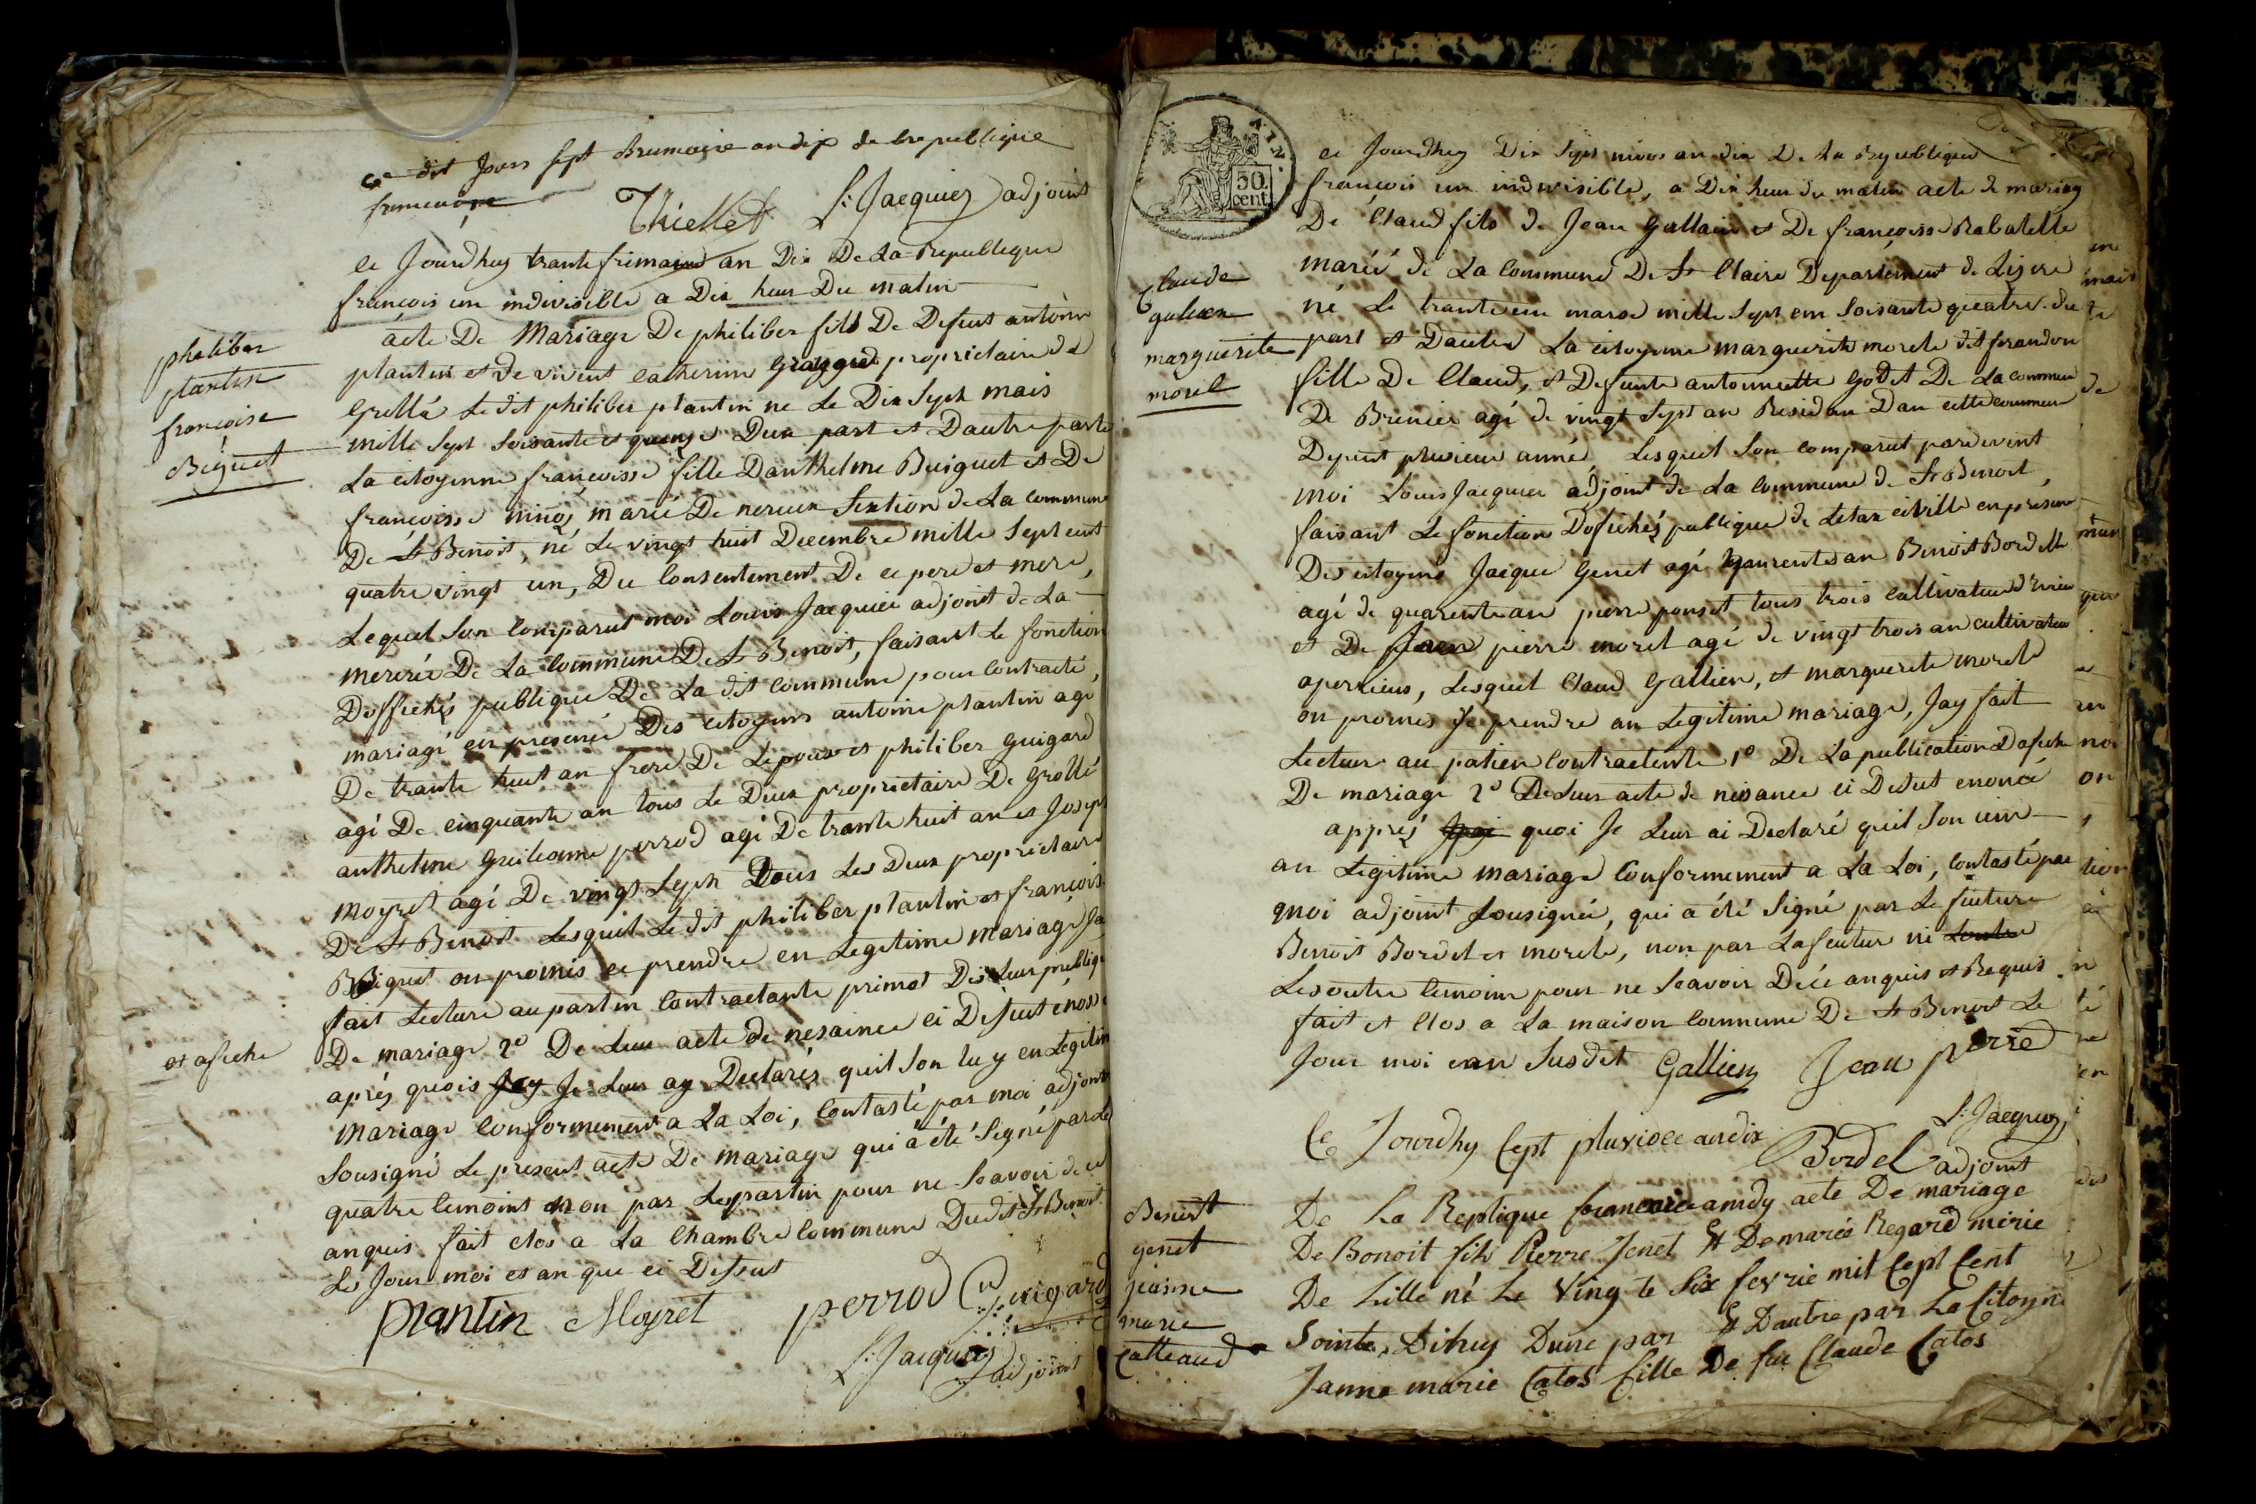 Ce dit Jour sept Brumaire an dix de la republique
francaise
Thiellet L: Jacquier adjoint
ce Jourdhuy trante frimaire an Dix De La Republique
francois une indivisible a Dix heur Du matin
philiber
plantin
francoise
Béguet
acte De Mariage De philiber fils De Defeut antoine
plantin et de vivent catherine proprietaire de
Grollé Le dit philiber plantin ne Le Dix Sept mais
mille Sept Soisante et quenze Dun part et Dautre parte
La citoyenne francoisse fille Danthelme Buiguet et De
francoisse marié De nereux Section de La commune
De St Benoit, né Le vingt huit Decembre mille Sept cent
quatre vingt un, Du Consentement De ce pere et mere,
Lequel Son Comparut moi Louis Jacquier adjoint de La
mererie De La Commune De St Benoit, faisant Le fonction
Doffichés publique De La dit Commune pour Contracté,
mariagé en presence Des citoyens antoine plantin agé
De trante huit an frere De Lepoux et philiber Guigard
agé De cinquante an tous Le Deux proprietaire De Grollé
anthelme Guileaume perrod agé De trante huit an et Josept
Moyret agé De vingt Sept Tous Les Deux proprietaire
De St Benoit Lesquel Le dit philiber plantin et francois
Béiguet on promis ce prendre en Legetime mariage Ja
fait Lecture au partin Contractante primot De leur publiq
et afiche
De mariage 2º De Leur acte de nesaince ci Desut énosé
aprés quois Jay Je Leur ay Declarés quil Son luy en Legitim
Mariage Conformement a La Loi, Contasté par moi adjoint
Sousigné Le present acte De mariage qui a été Signé par Le
quatre temoint non par Le partin pour ne Seavoir de ce
anquis fait clos a La Chambre Commune Dudit St Benoit
Le Jour moi et an que ci Dessut
plantin Moyret perrod Guigard
L: Jacquier
adjoint
50.
cent
ce Jourdhuy Dix Sept nivos an dix De La Republique
francois une indivisible, a Dix heur du matin acte de mariag
De Claud fils de Jean Gallien et De francoisse Rabatelle
Claude
galien
marguerite
morel
marié de La Commune De St Claire Departement de Lizere
né Le trante un marse mille Sept cen Soisante quatre. du
part et Dautre La citoyenne marguerite morele dit frandon
fille De Claud, et Defunte antounette Godet De La commun
De Brenier agé de vingt Sept an Residan Dan cette commun
Depeut plusieur anné Lesquel Son Comparut pardevent
moi Louis Jacquier adjoint de La Commune de St Benoit
faisant Le fonction Dofichés publique de Letat civille en presen
Des citoyens Jacque Genet agé quarente an Benoit Bordelle
agé de quarente an pierre ponset tous trois Cultivateur
et De Jean pierre morel agé de vingt trois an cultivateur
aperrieus, Lesquel Claud Gallien, et marguerite morele
on promes ce prendre an Legitime mariage, Jay fait
Lecture au patien Contractente 1º De La publication Dafiche
De mariage 2º De Leur acte de nesance ci Desut enoncé
apprés quoi Je Leur ai Declaré quil Son uni
an Legitime mariage Conformement a La Loi, Contasté par
moi adjoint Sousigné, qui a été Signé par Le feuture
Benoit Bordel et morele, non par La feuture ni
Les outre temoin pour ne Seavoir De ce anquis et Requis
fait et Clos a La maison Commune De St Benoit Le
Jour moi et an Susdit Gallien Jean pierre
L: Jacquier
Ce Jourdhy sept pluviose an dix Bordel adjoint
Benoit
genet
jeanne
marie
Catteaud
De La Reptique francaise acte De mariage
De Bonoit fils Pierre Jenet Et De marie Regard mérie
De Lille né Le Ving te Six fevrie mil Cept Cent
Sointe, Dune par Et Dautre par La Citoyne
Janne marie Catos fille De feu Claude Catos